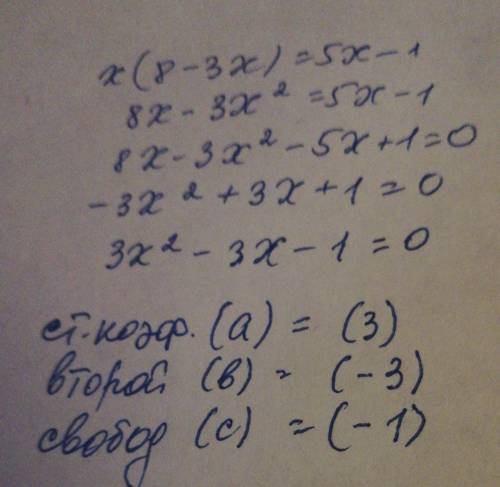 x(8-3x)=5x-1
8x-3x²=5x-1
8x-3x²-5x+1=0
-3x²+3x+1=0
3x²-3x-1=0
ст.коэф. (a) = (3)
второй (в) = (-3)
свобод (c) = (-1)